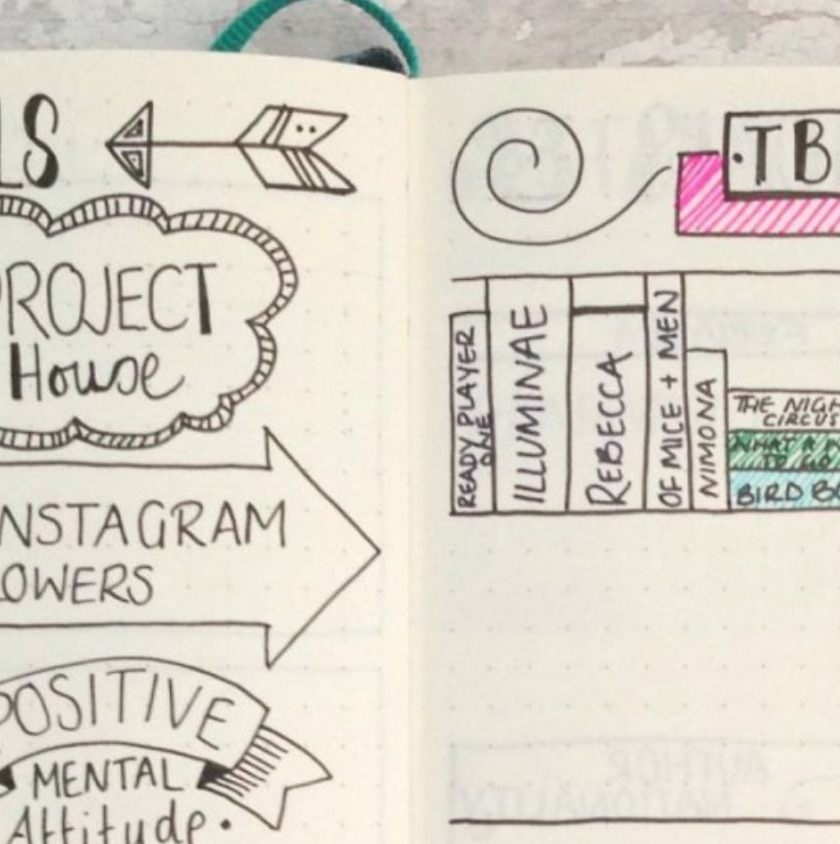 LS
PROJECT
House
INSTAGRAM
LOWERS
POSITIVE
MENTAL
Attitude.
.TB
READY PLAYER
ONE
ILLUMINAE
REBECCA
OF MICE + MEN
NIMONA
THE NIGH
CIRCUS
WHAT A
TO GO
BIRD BO
AUTHOR
NATIONALITY